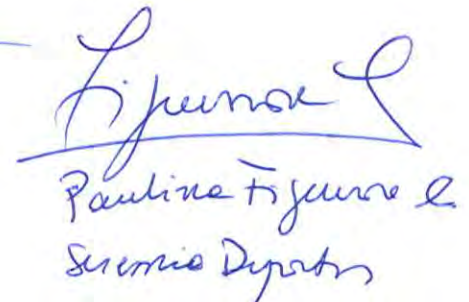 Figueroa C
Paulina Figueroa C.
Seremia Deportes